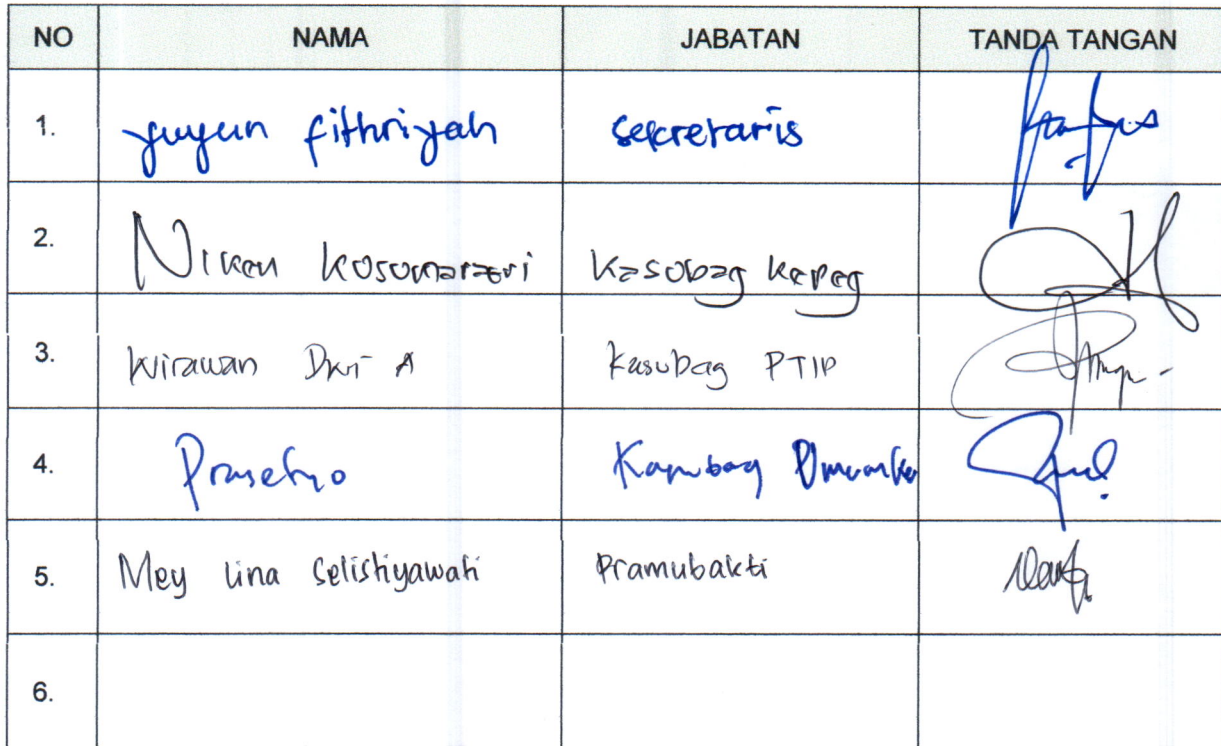 NO NAMA JABATAN TANDA TANGAN
1. Yuyun Fithriyah Sekretaris
2. Niken Kosumarari Kasobag Kepeg
3. Wirawan Dwi A Kasubag PTIP
4. Prasetyo Kasubag
5. Mey Lina Selistiyawati Pramubakti
6.